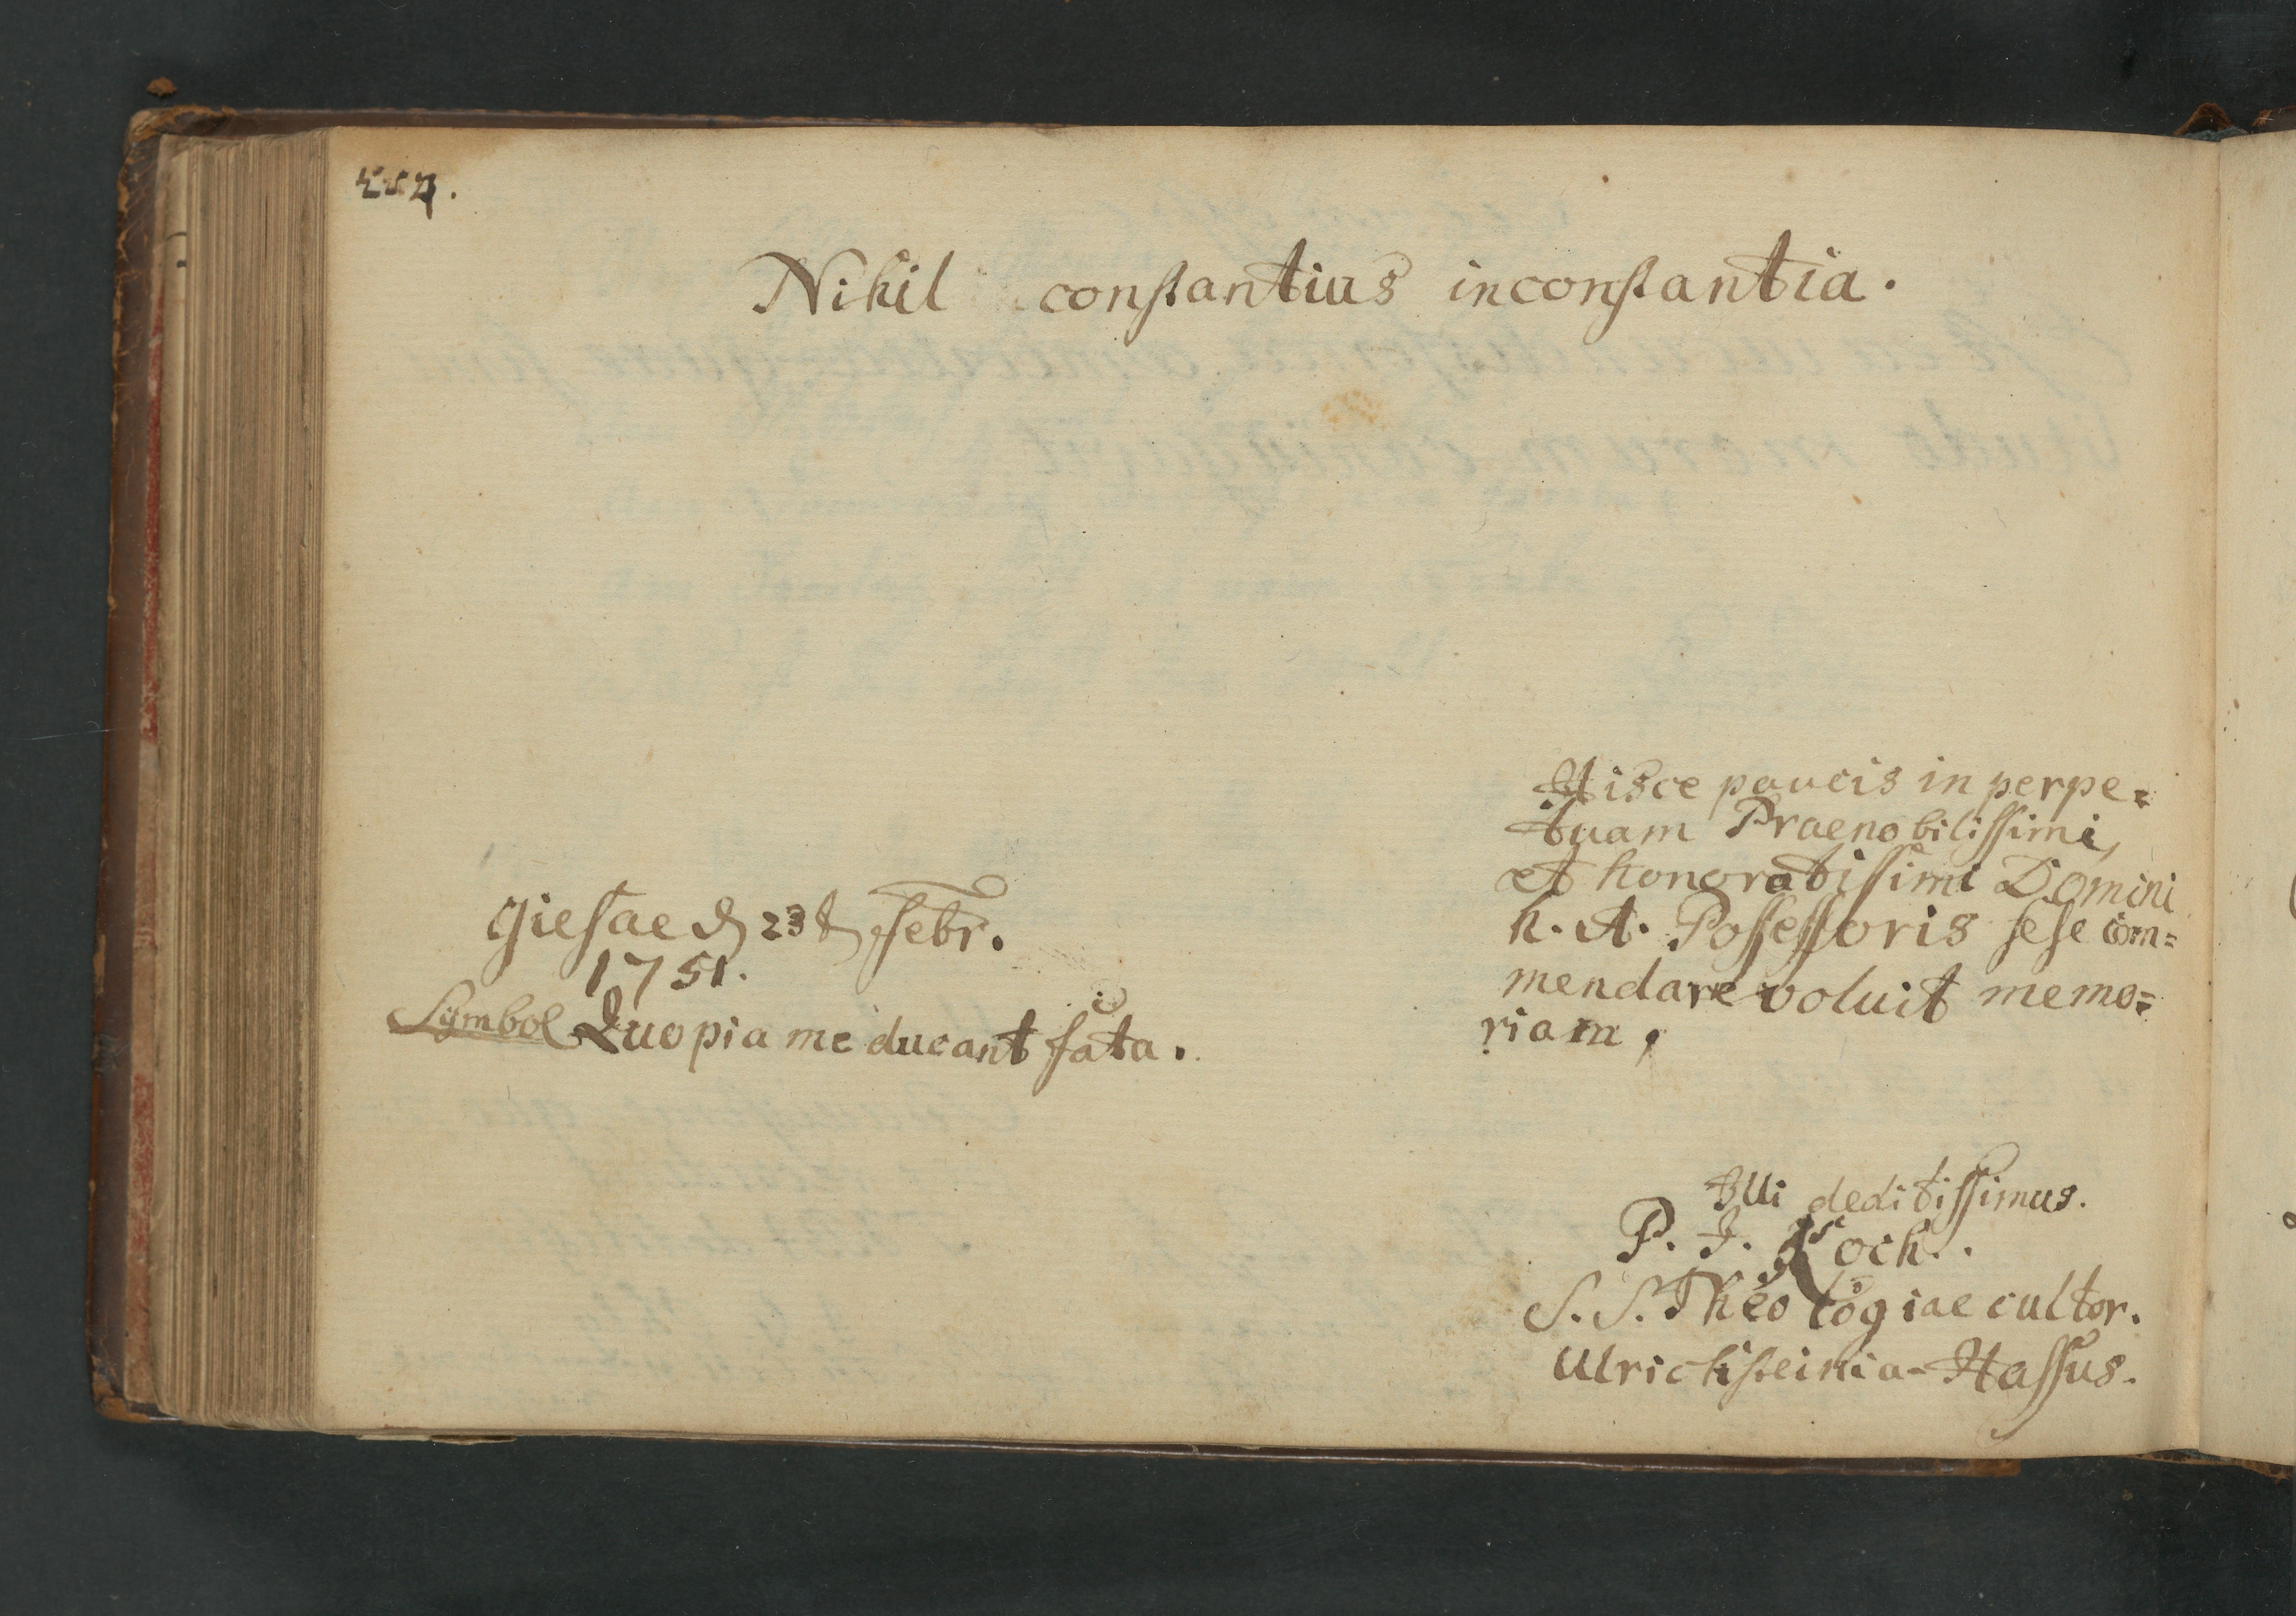 Nihil constantius inconstantia.
Giesae d 23 t Febr.
1751.
Symbol Quo pia me ducant fata.
Hisce paucis in perpe=
tuam Praenobilissimi,
et honoratissimi Domini
h. A. Possessoris sese com=
mendare voluit memo=
riam,
Illi deditissimus.
P. J. Koch.
S. S. Theologiae cultor.
Ulrichsteinia-Hassus.